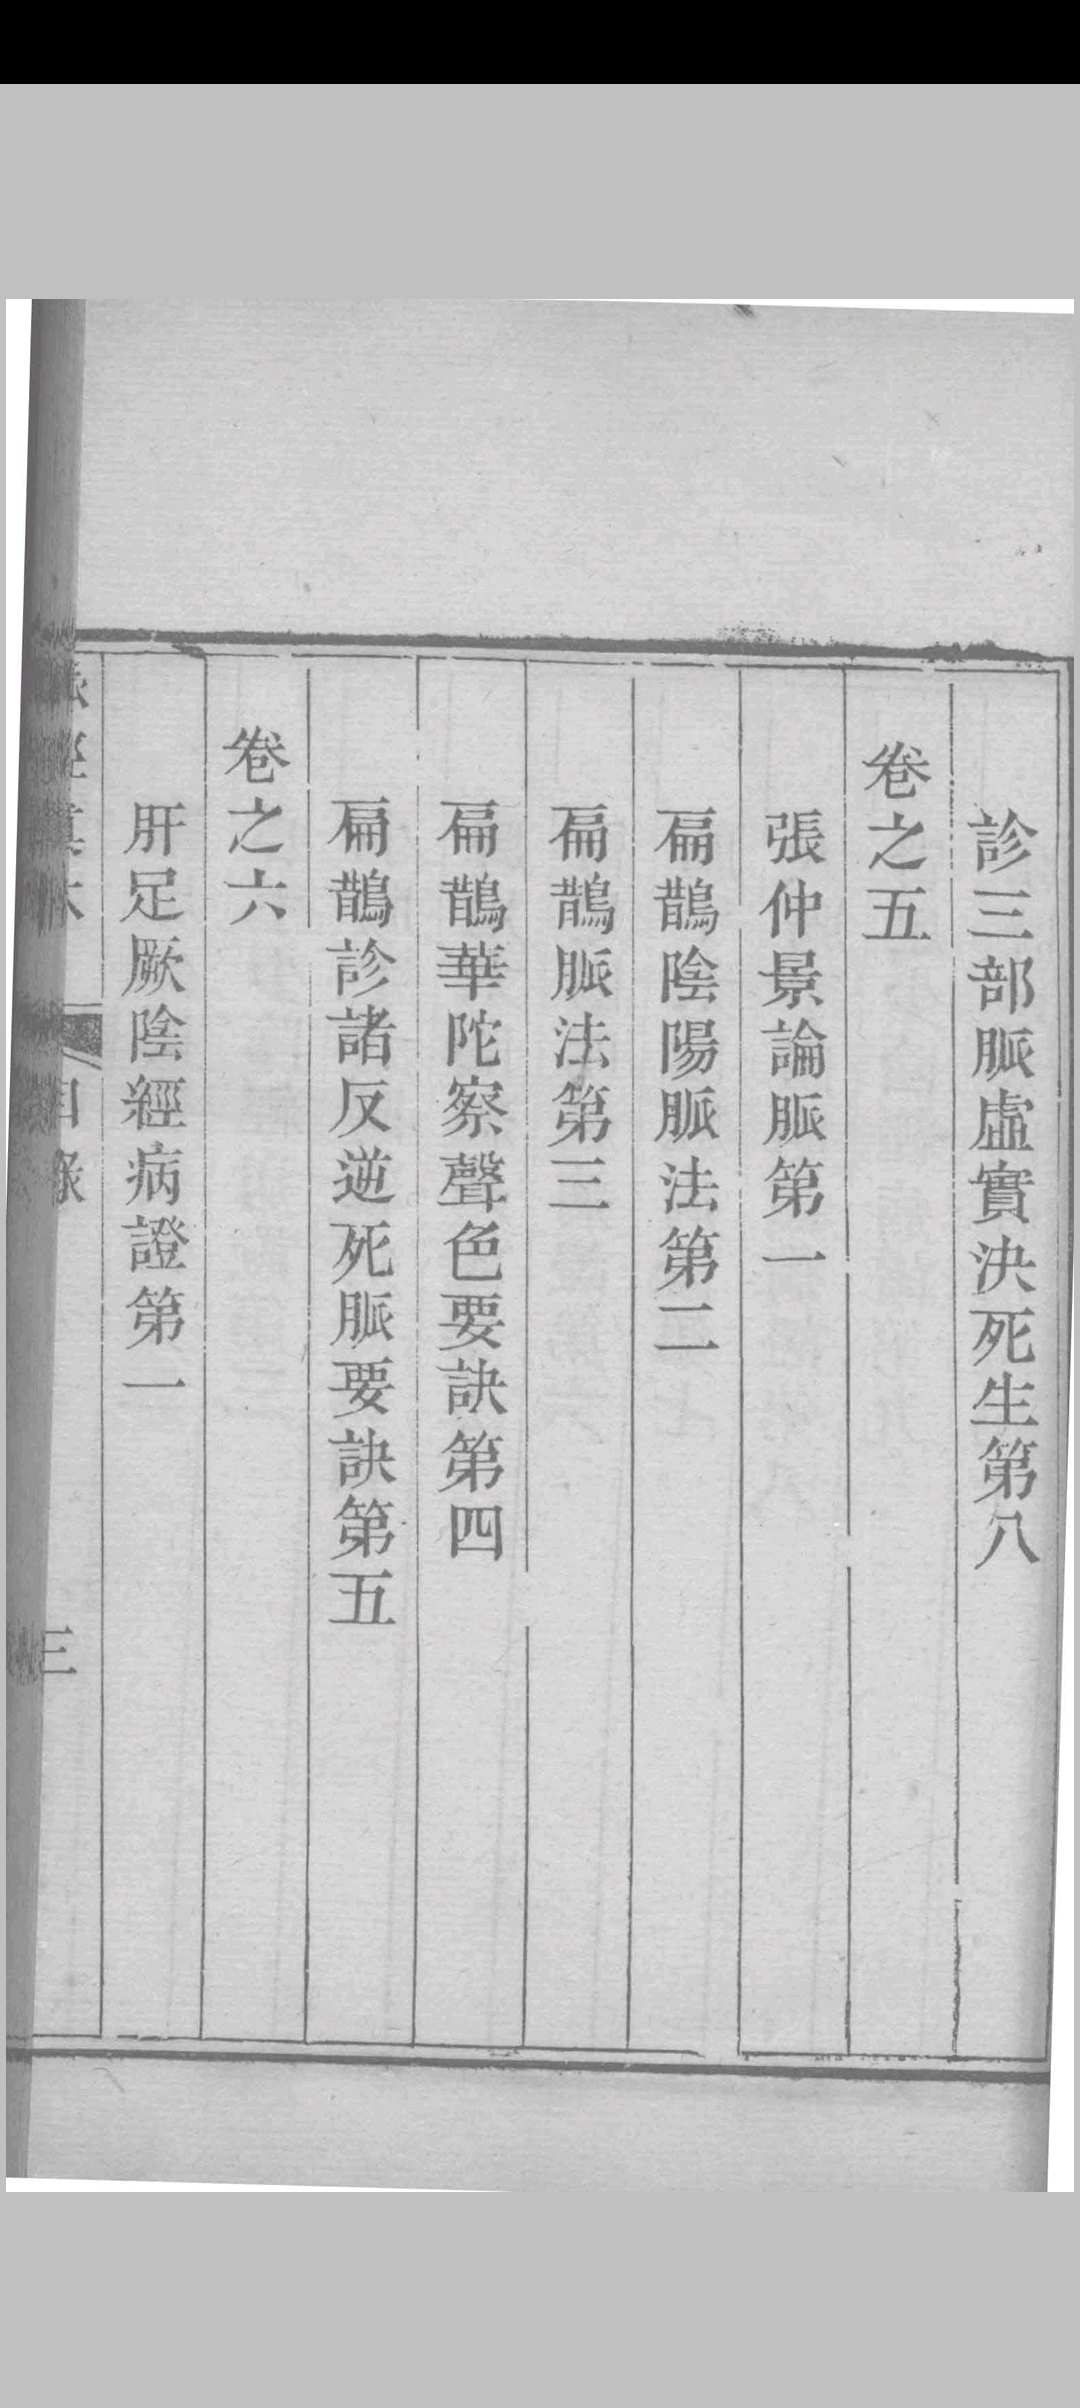 診三部脈虛實決死生第八
卷之五
張仲景論脈第一
扁鵲陰陽脈法第二
扁鵲脈法第三
扁鵲華陀察聲色要訣第四
扁鵲診諸反逆死脈要訣第五
卷之六
肝足厥陰經病證第一
三